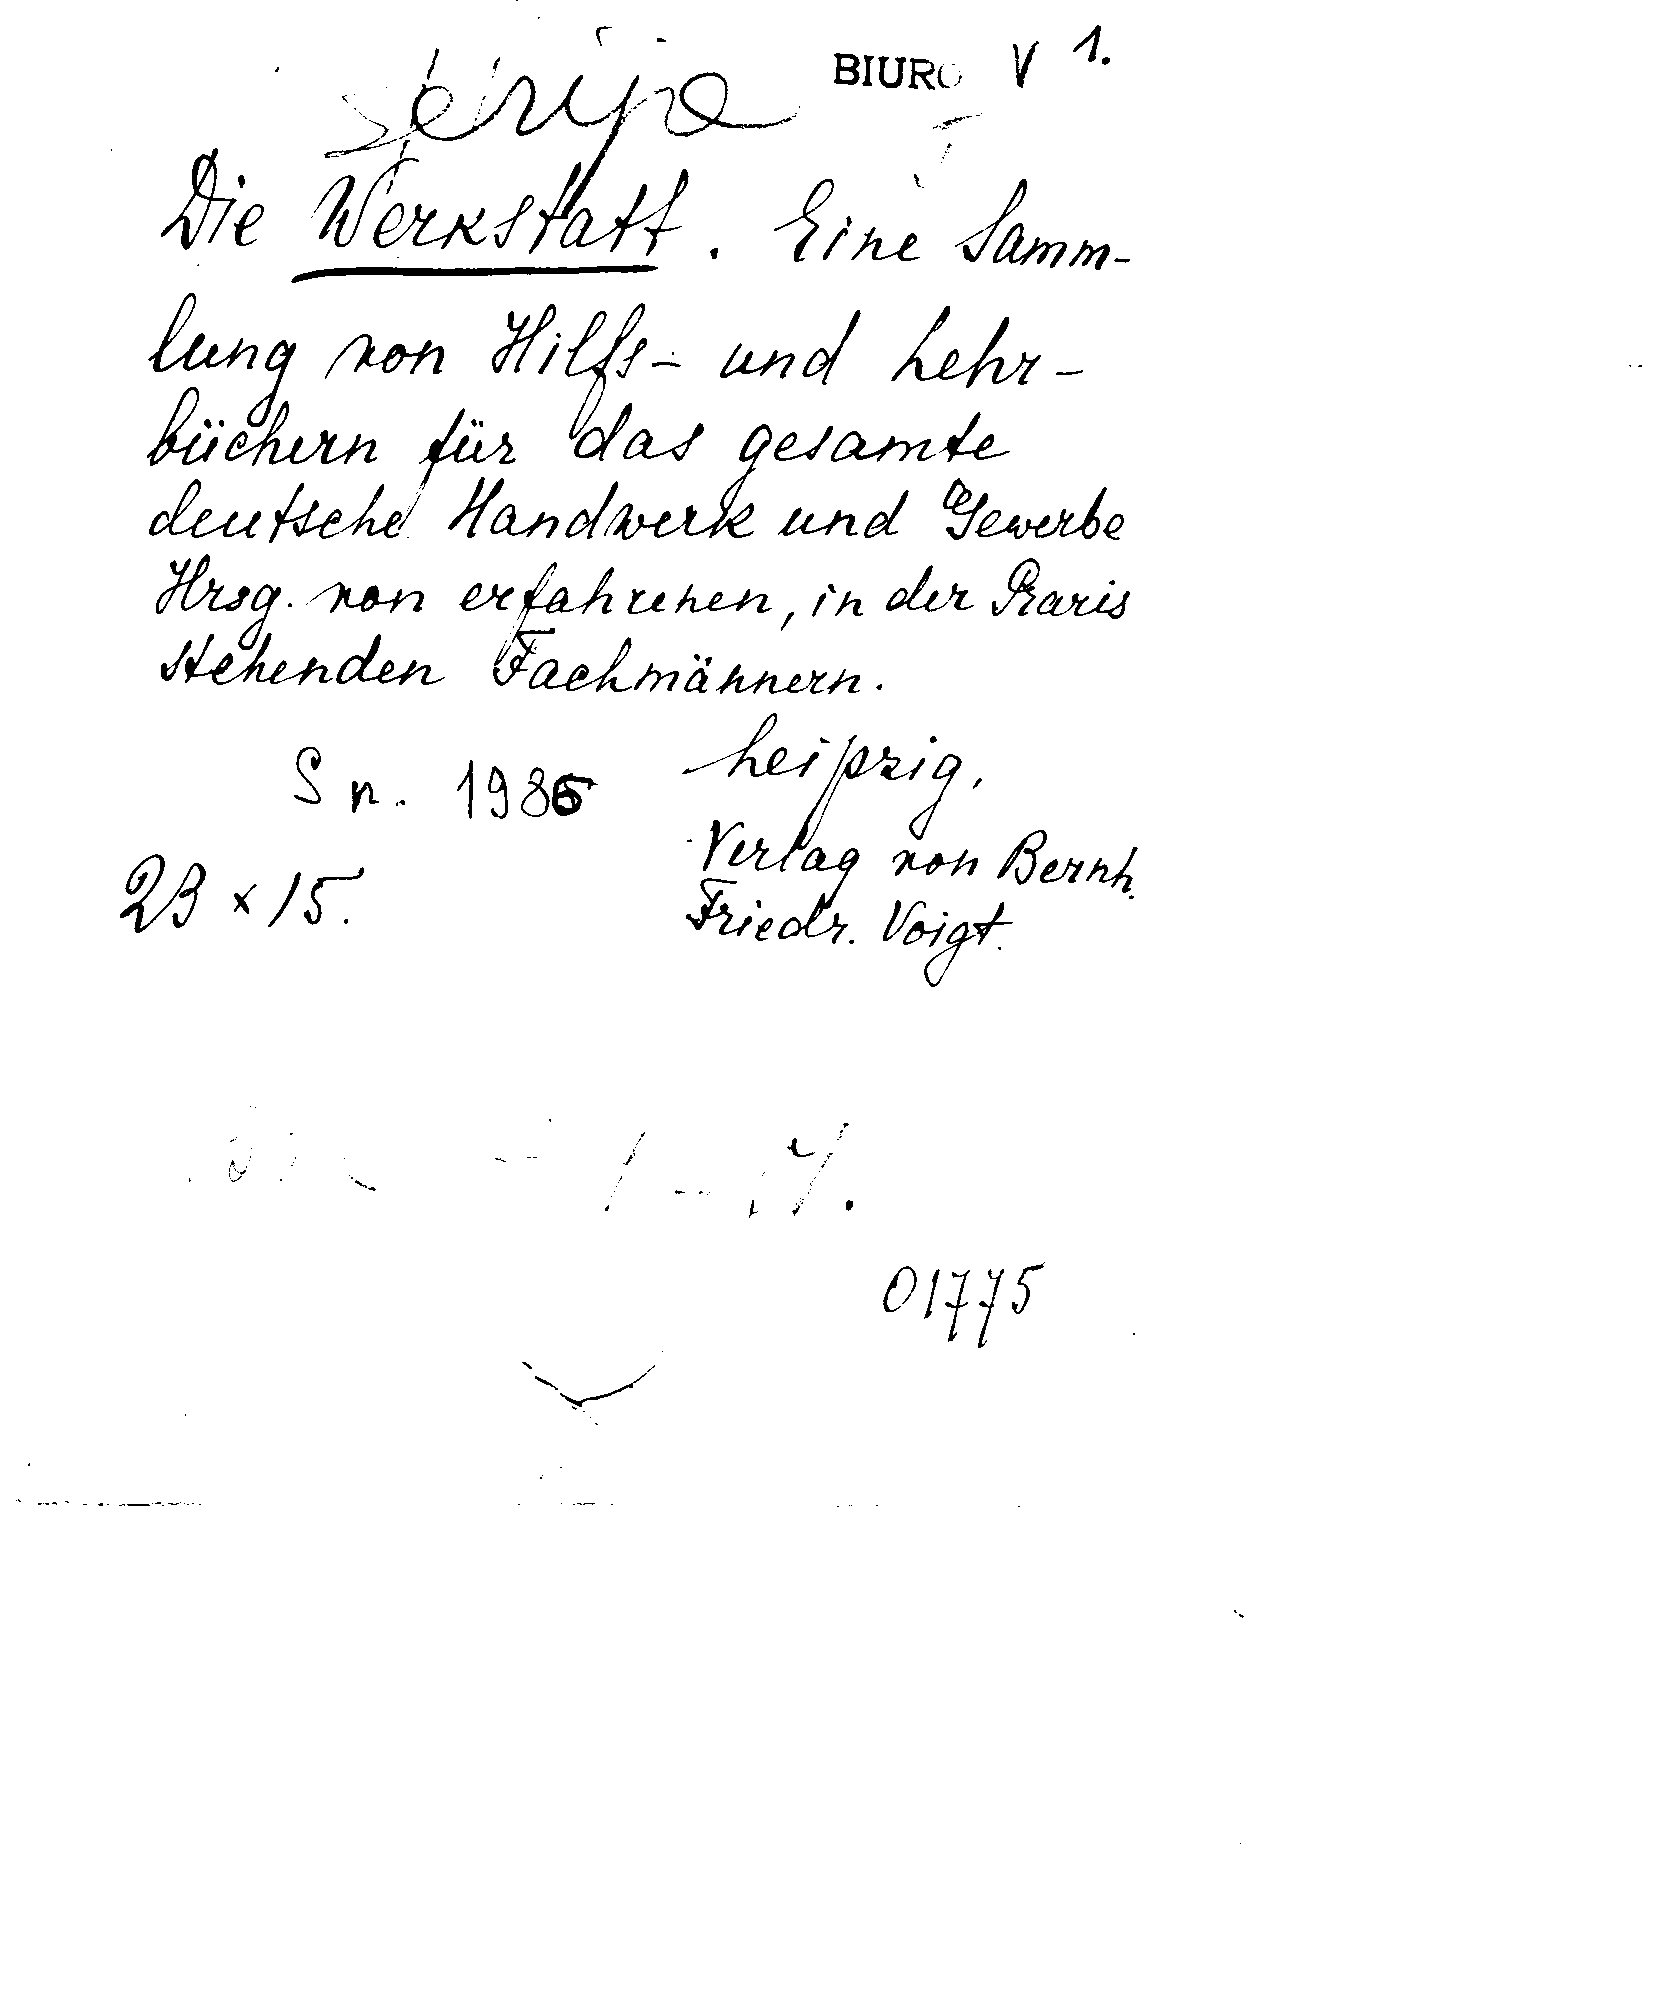 BIURO V 1.
Serija
Die Werkstatt. Eine Samm-
lung von Hilfs- und Lehr-
büchern für das gesamte
deutsche Handwerk und Gewerbe
Hrsg. von erfahrenen, in der Praxis
stehenden Fachmännern.
S n. 1986 Leipzig,
Verlag von Bernh.
23 x 15. Friedr. Voigt.
01775